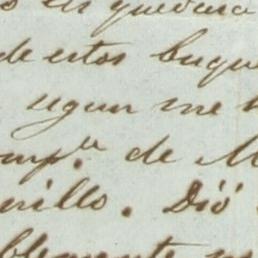 quedara
de estos buque
segun me
comp.ª de M
rillo. Dió
blemente